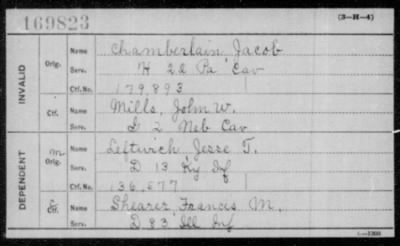 169823
(3—H—4)
INVALID
Orig.
Name Chamberlain, Jacob
Serv. H 2d Pa Cav
Ctf.No. 179,893
Ctf.
Name Mills, John W.
Serv. G 2 Neb Cav
DEPENDENT
m
Orig.
Name Leftwich, Jesse T.
Serv. D 13 Ky Inf
Ctf.No. 136,677
Ctf.
Name Shearer, Francis M.
Serv. D 83 Ill Inf